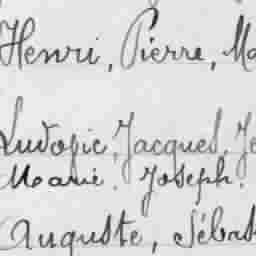 Henri, Pierre, Ma
Ludovic, Jacques, Je
Marie. Joseph.
Auguste, Sébas